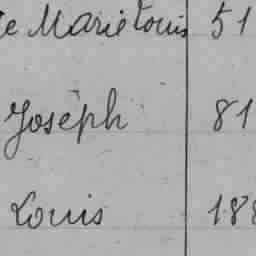 e Marie Louis 51
Joseph 81
Louis 188